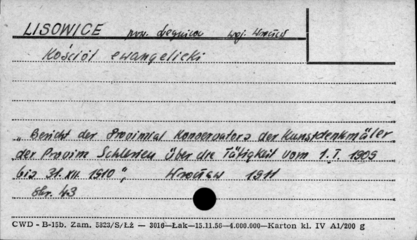 LISOWICE pow. Legnica woj. Wrocław
Kościół ewangelicki
„Bericht der Provinzial Konservators der Kunstdenkmäler
der Provinz Schlesien über die Tätigkeit vom 1.I. 1909
bis 31.XII. 1910", Wrocław 1911
Str. 43
CWD - B-15b. Zam. 5823/S/Łż — 3016—Łak—15.11.56—4.000.000—Karton kl. IV A1/200 g